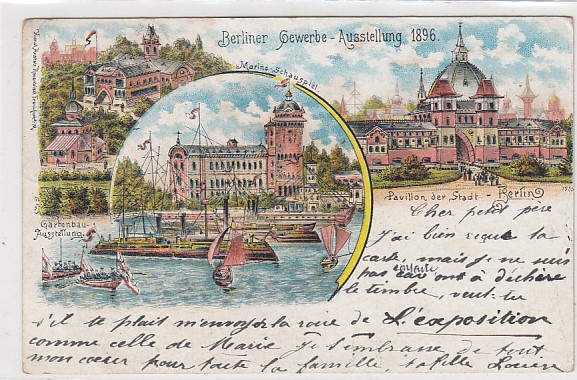 Berliner Gewerbe-Ausstellung 1896.
Marine-Schauspiel.
Gartenbau-
Ausstellung.
Pavillon der Stadt - Berlin
Cher petit père
J'ai bien reçue ta
carte, mais j. ne suis
pas ensuite car ont a déchiré
le timbre, veut-tu
s'il te plait m'envoyer la vue de L'exposition
comme celle de Marie je t'embrasse de tout
mon coeur pour toute la famille, ta fille Louise